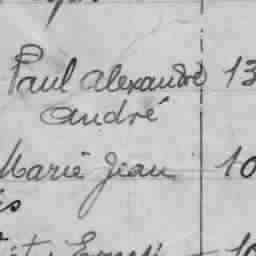 Paul Alexandre 13
André
Marie Jean 10
is
10